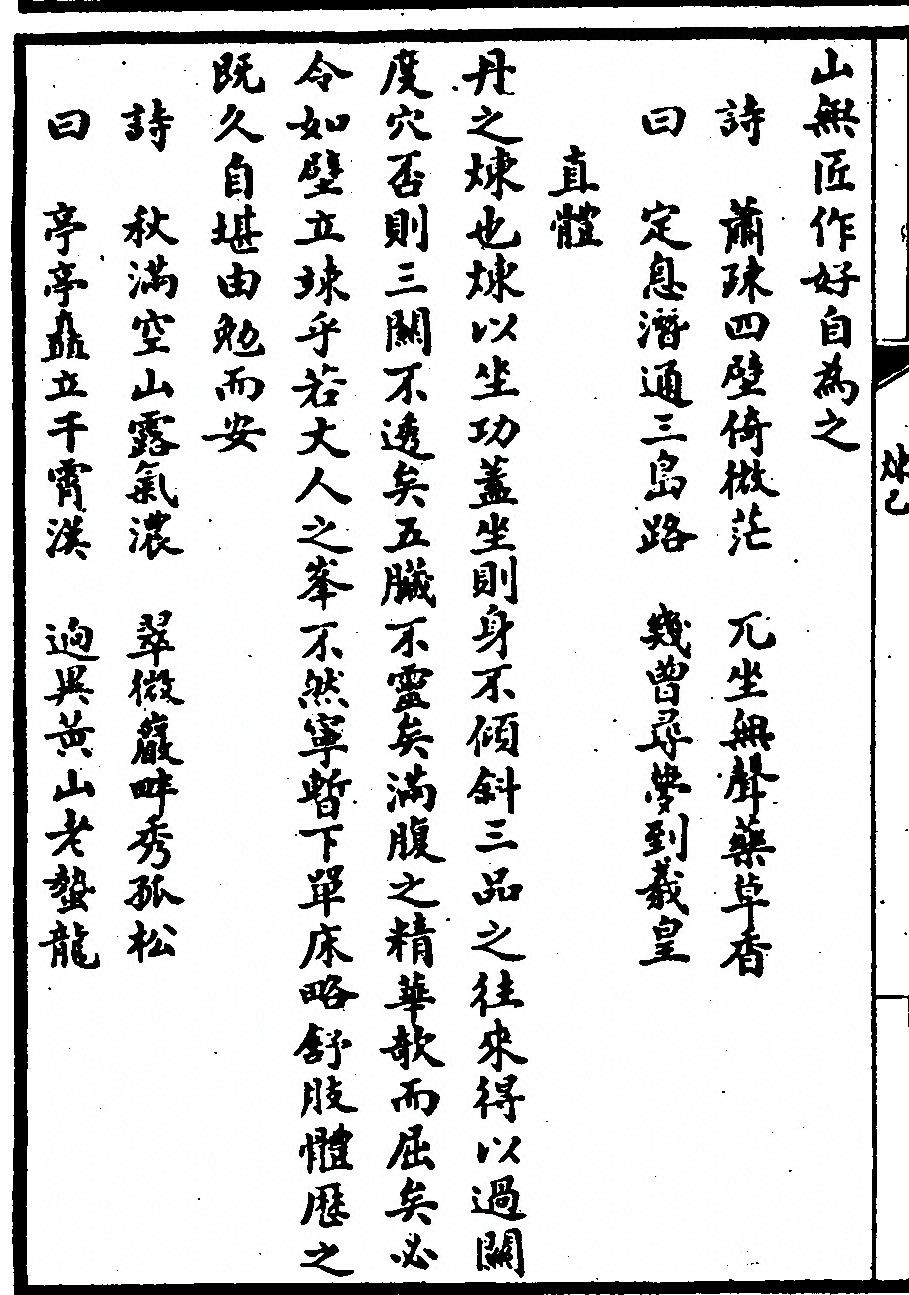 山無匠作好自為之
詩 蕭疎四壁倚微茫 兀坐無聲藥草香
曰 定息潛通三島路 幾曾尋夢到羲皇
直體
丹之煉也煉以坐功蓋坐則身不傾斜三品之往來得以過關
度穴否則三關不透矣五臟不靈矣滿腹之精華欹而屈矣必
令如壁立竦乎若丈人之峯不然寧暫下單床略舒肢體歷之
既久自堪由勉而安
詩 秋滿空山露氣濃 翠微巖畔秀孤松
曰 亭亭矗立千霄漢 逈異黃山老蟄龍
煉己